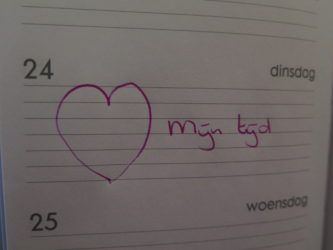 24 dinsdag
Mijn tijd
woensdag
25